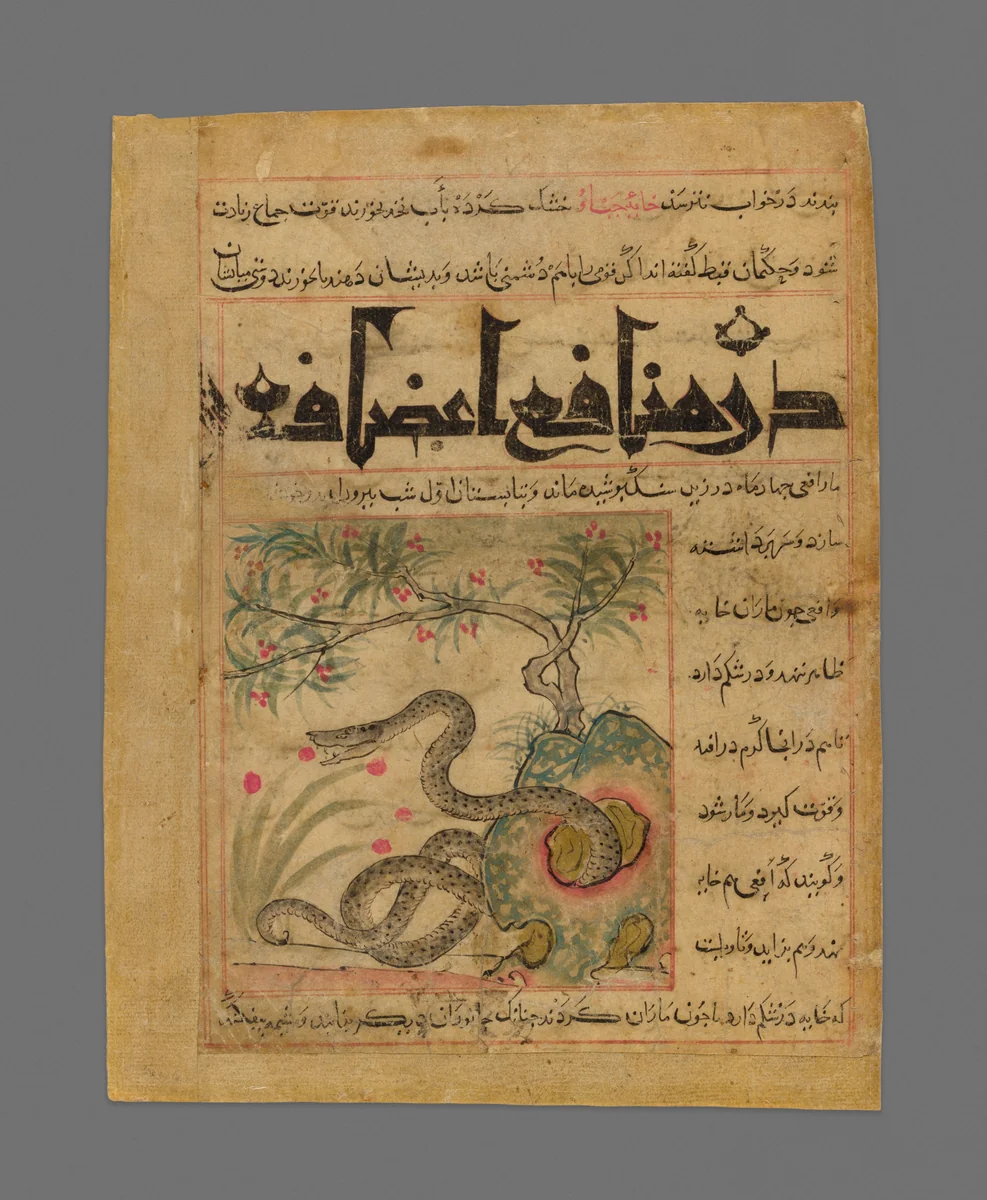 بندند در خواب نترسد خایۀ حباو خشک کرده بآب نخد بخورند قوت جماع زیادت
شود و حکیمان قبط گفته اند اگر قومی را با هم دشمنی باشد و بدیشان دهند تا بخورند دوستی میانشان
در منافع اعضا
مار افعی چهار ماه در زمین سنگ پوشیده ماند و بتابستان اول شب بیرون اید
سازد و سر برداشته
و افعی چون ماران خایه
ظاهر ننهد و در شکم دارد
تا هم در انجا گرم در افتد
و قوت گیرد و مار شود
و گویند که افعی هم خایه
نهد و هم بزاید و تاویلست
که خایه در شکم دارد تا چون ماران کردند چنانک جانوران دیگر بزایند